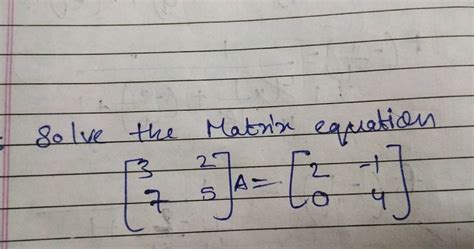 Solve the Matrix equation
[3 2
7 5] A = [2 -1
0 4]